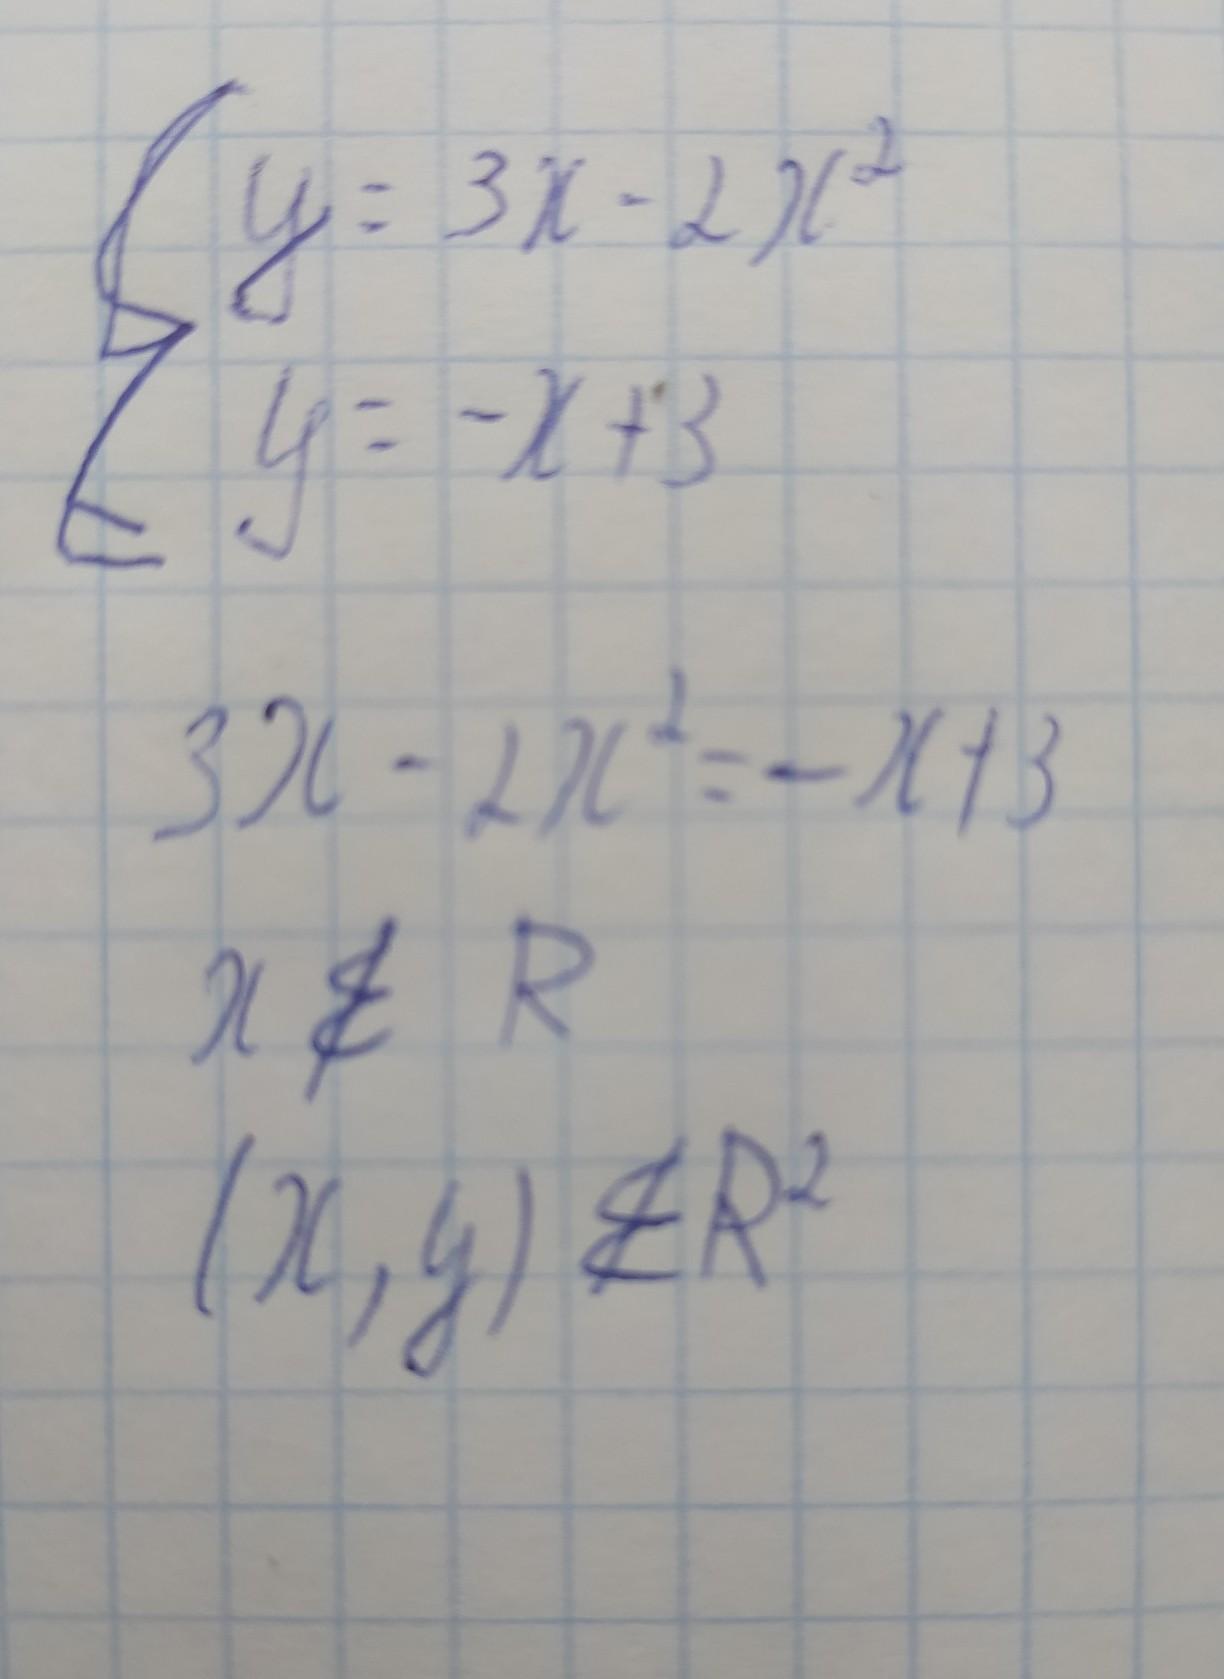 y = 3x - 2x²
y = -x + 3
3x - 2x² = -x + 3
x ∉ R
(x, y) ∉ R²